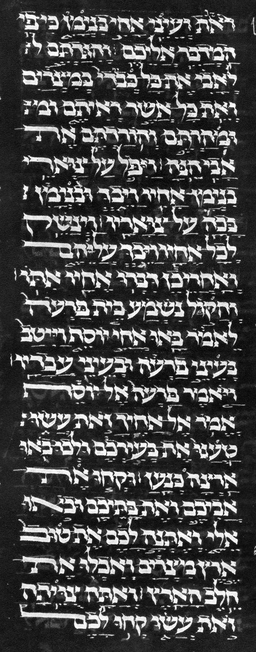 ראות ועיני אחי בנימן כי פי
המדבר אליכם והגדתם ל
לאבי את כל כבודי במצרים
ואת כל אשר ראיתם ומה
ומהרתם והורדתם את
אבי הנה ויפל על צוארי
בנימן אחיו ויבך ובנימן
בכה על צואריו וינשק
לכל אחיו ויבך עליהם
ואחרי כן דברו אחיו אתו
והקול נשמע בית פרעה
לאמר באו אחי יוסף וייטב
בעיני פרעה ובעיני עבדיו
ויאמר פרעה אל יוסף
אמר אל אחיך זאת עשו
טענו את בעירכם ולכו באו
ארצה כנען וקחו את
אביכם ואת בתיכם ובאו
אלי ואתנה לכם את טוב
ארץ מצרים ואכלו את
חלב הארץ ואתה צויתה
זאת עשו קחו לכם